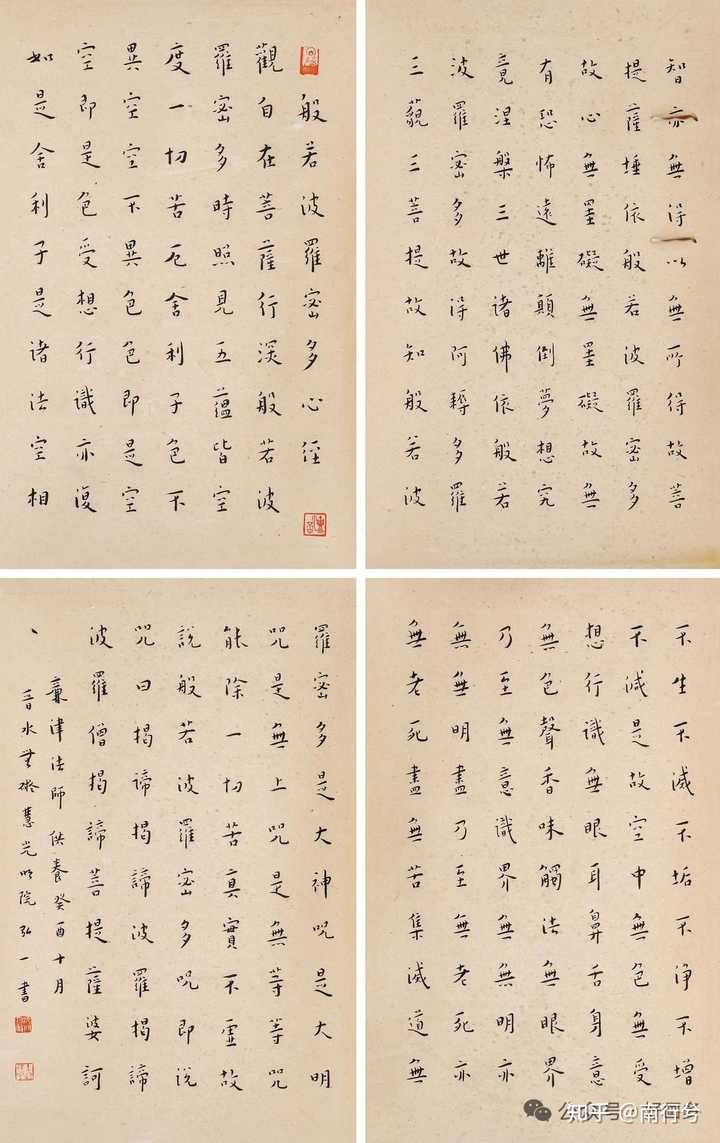 般若波羅密多心經
觀自在菩薩行深般若波
羅密多時照見五蘊皆空
度一切苦厄舍利子色不
異空空不異色色即是空
空即是色受想行識亦復
如是舍利子是諸法空相
不生不滅不垢不淨不增
不減是故空中無色無受
想行識無眼耳鼻舌身意
無色聲香味觸法無眼界
乃至無意識界無無明亦
無無明盡乃至無老死亦
無老死盡無苦集滅道無
智亦無得以無所得故菩
提薩埵依般若波羅密多
故心無罣礙無罣礙故無
有恐怖遠離顛倒夢想究
竟涅槃三世諸佛依般若
波羅密多故得阿耨多羅
三藐三菩提故知般若波
羅密多是大神咒是大明
咒是無上咒是無等等咒
能除一切苦真實不虛故
說般若波羅密多咒即說
咒曰揭諦揭諦波羅揭諦
波羅僧揭諦菩提薩婆訶
津法師供養癸酉十月
晉水慧光明院弘一書
知乎 @南行兮